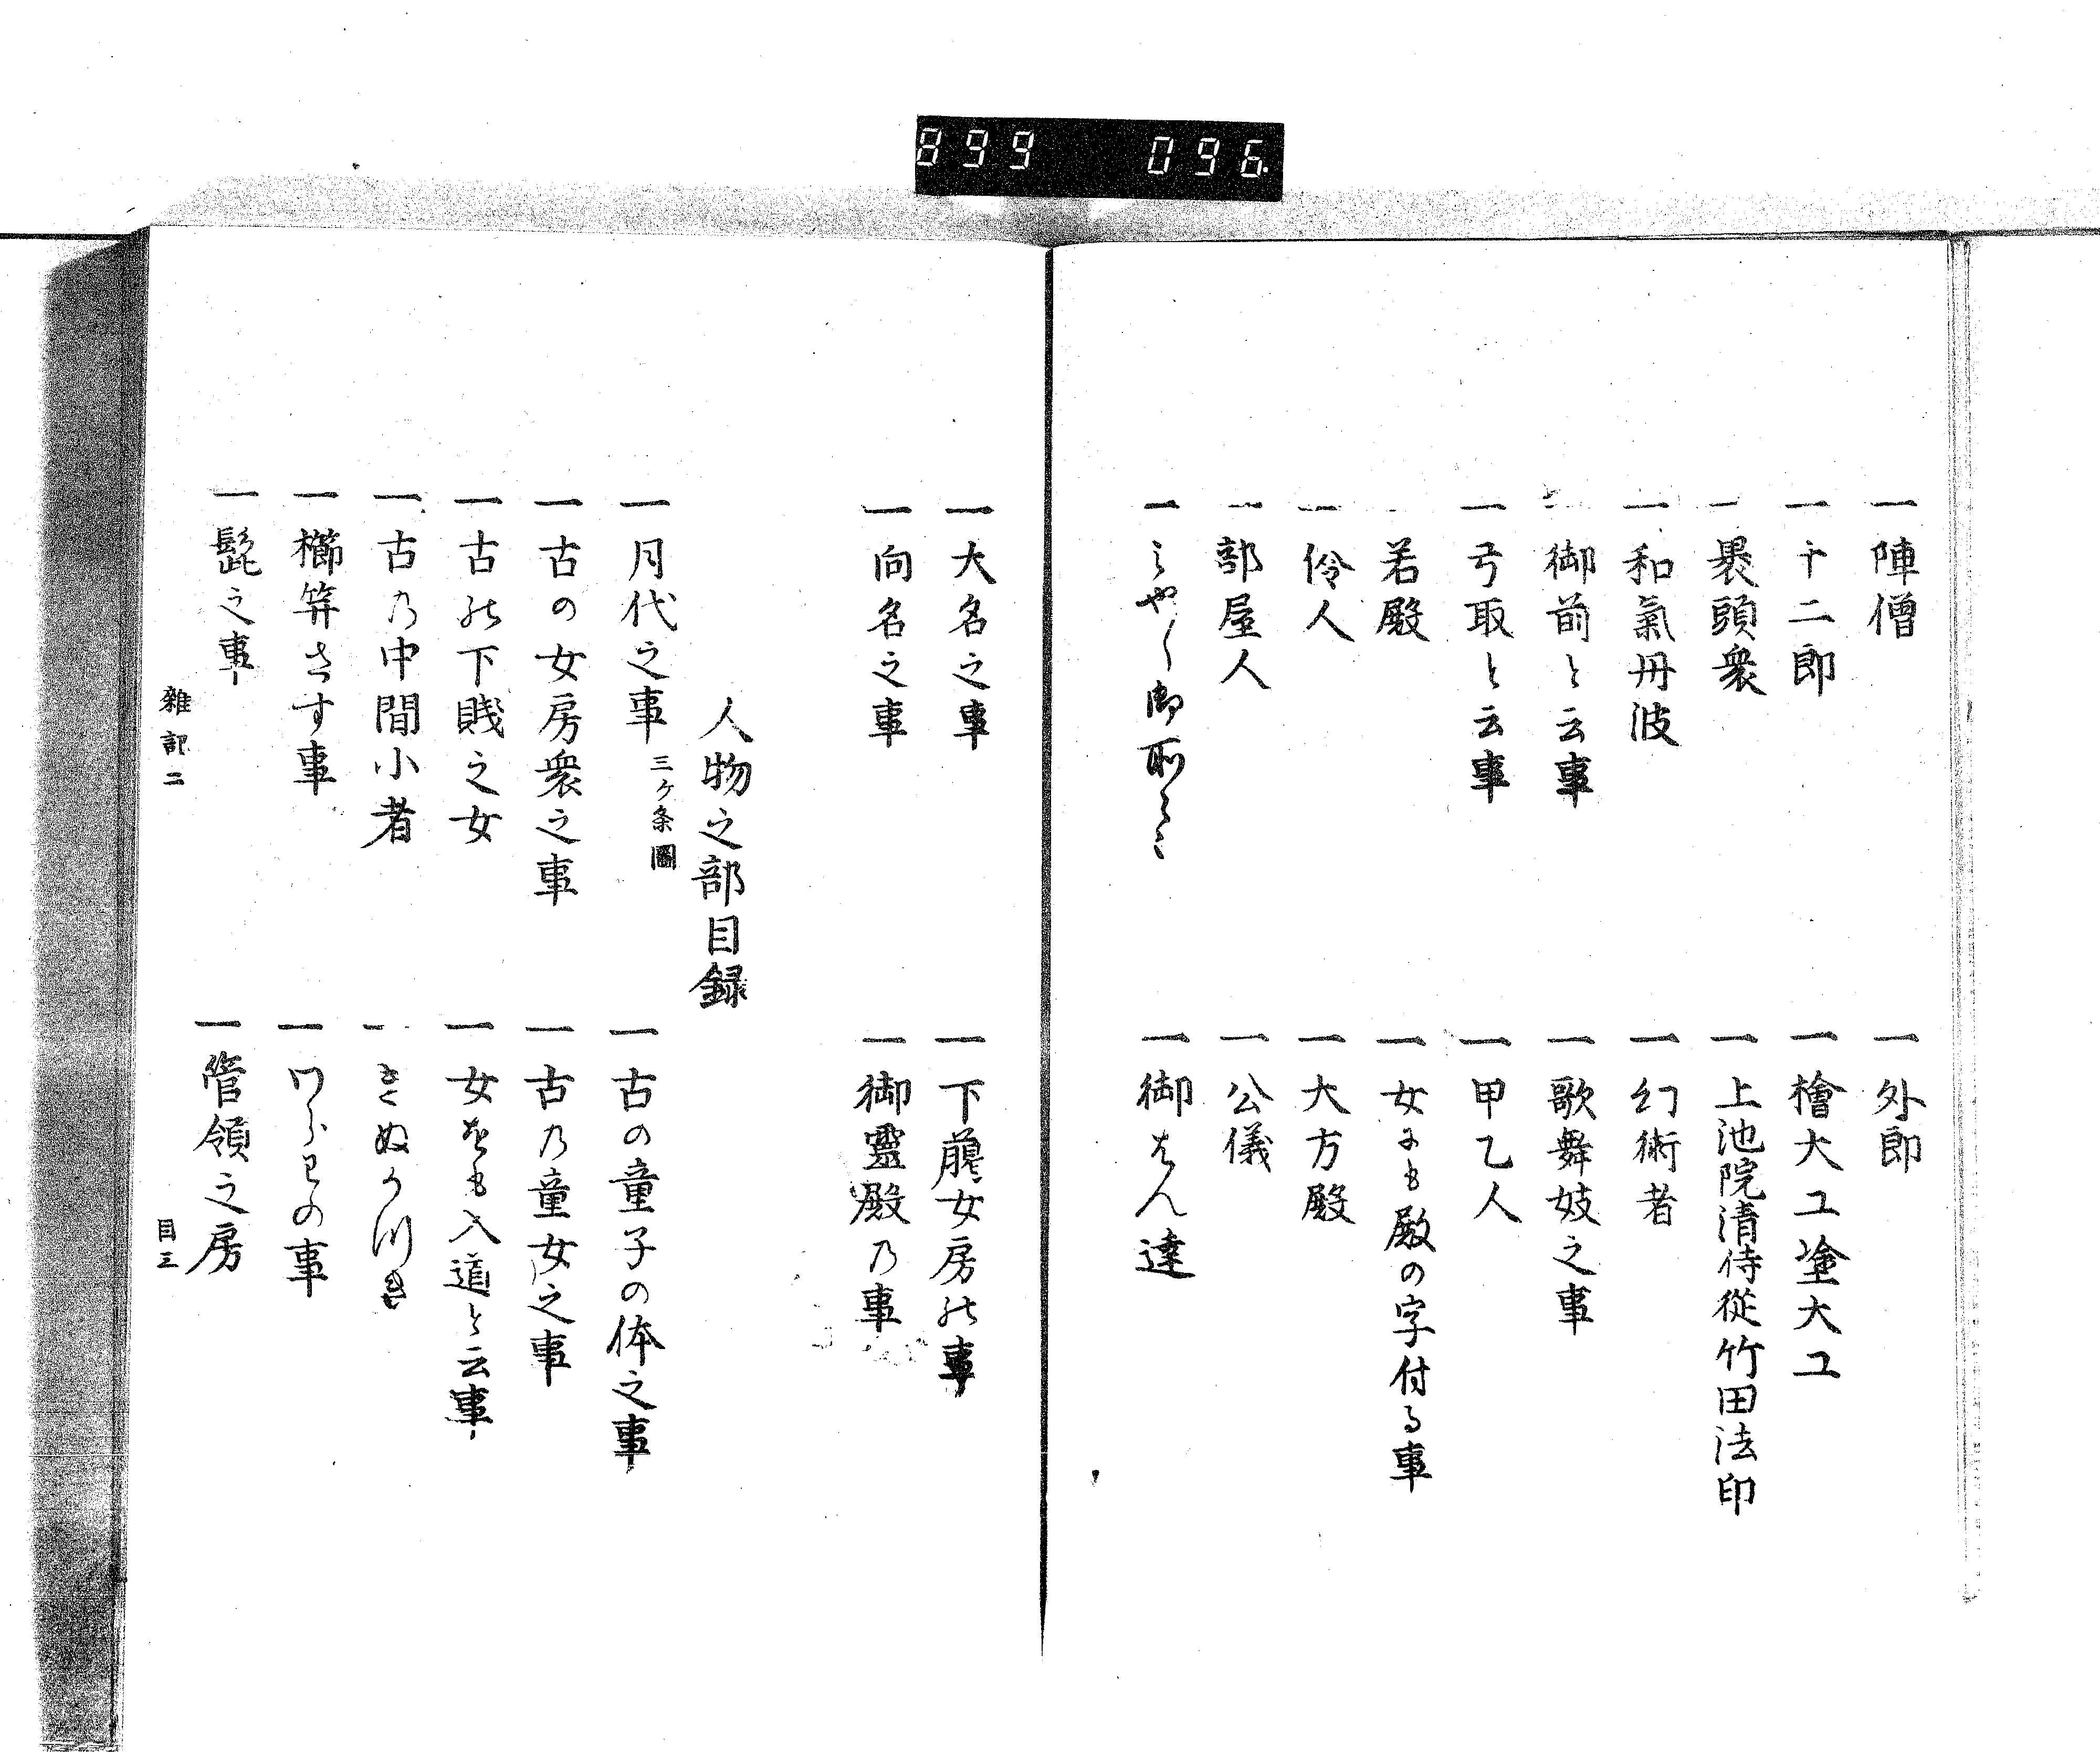 899 096
一陣僧
一外郎
一十二郎
一檜大工塗大工
一褁頭衆
一上池院清侍従竹田法印
一和氣丹波
一幻術者
一御前と云事
一歌舞妓之事
一弓取と云事
一甲乙人
一若殿
一女にも殿の字付る事
一伶人
一大方殿
一部屋人
一公儀
一御所
一御はん達
一大名之事
一下﨟女房の事
一向名之事
一御靈殿乃事
人物之部目録
一月代之事 三ケ条圖
一古の童子の体之事
一古の女房衆之事
一古乃童女之事
一古の下賎之女
一女をも入道と云事
一古乃中間小者
一きぬかつき
一櫛笄さす事
一わらはの事
一髭之事
一管領之房
雑記二
目三